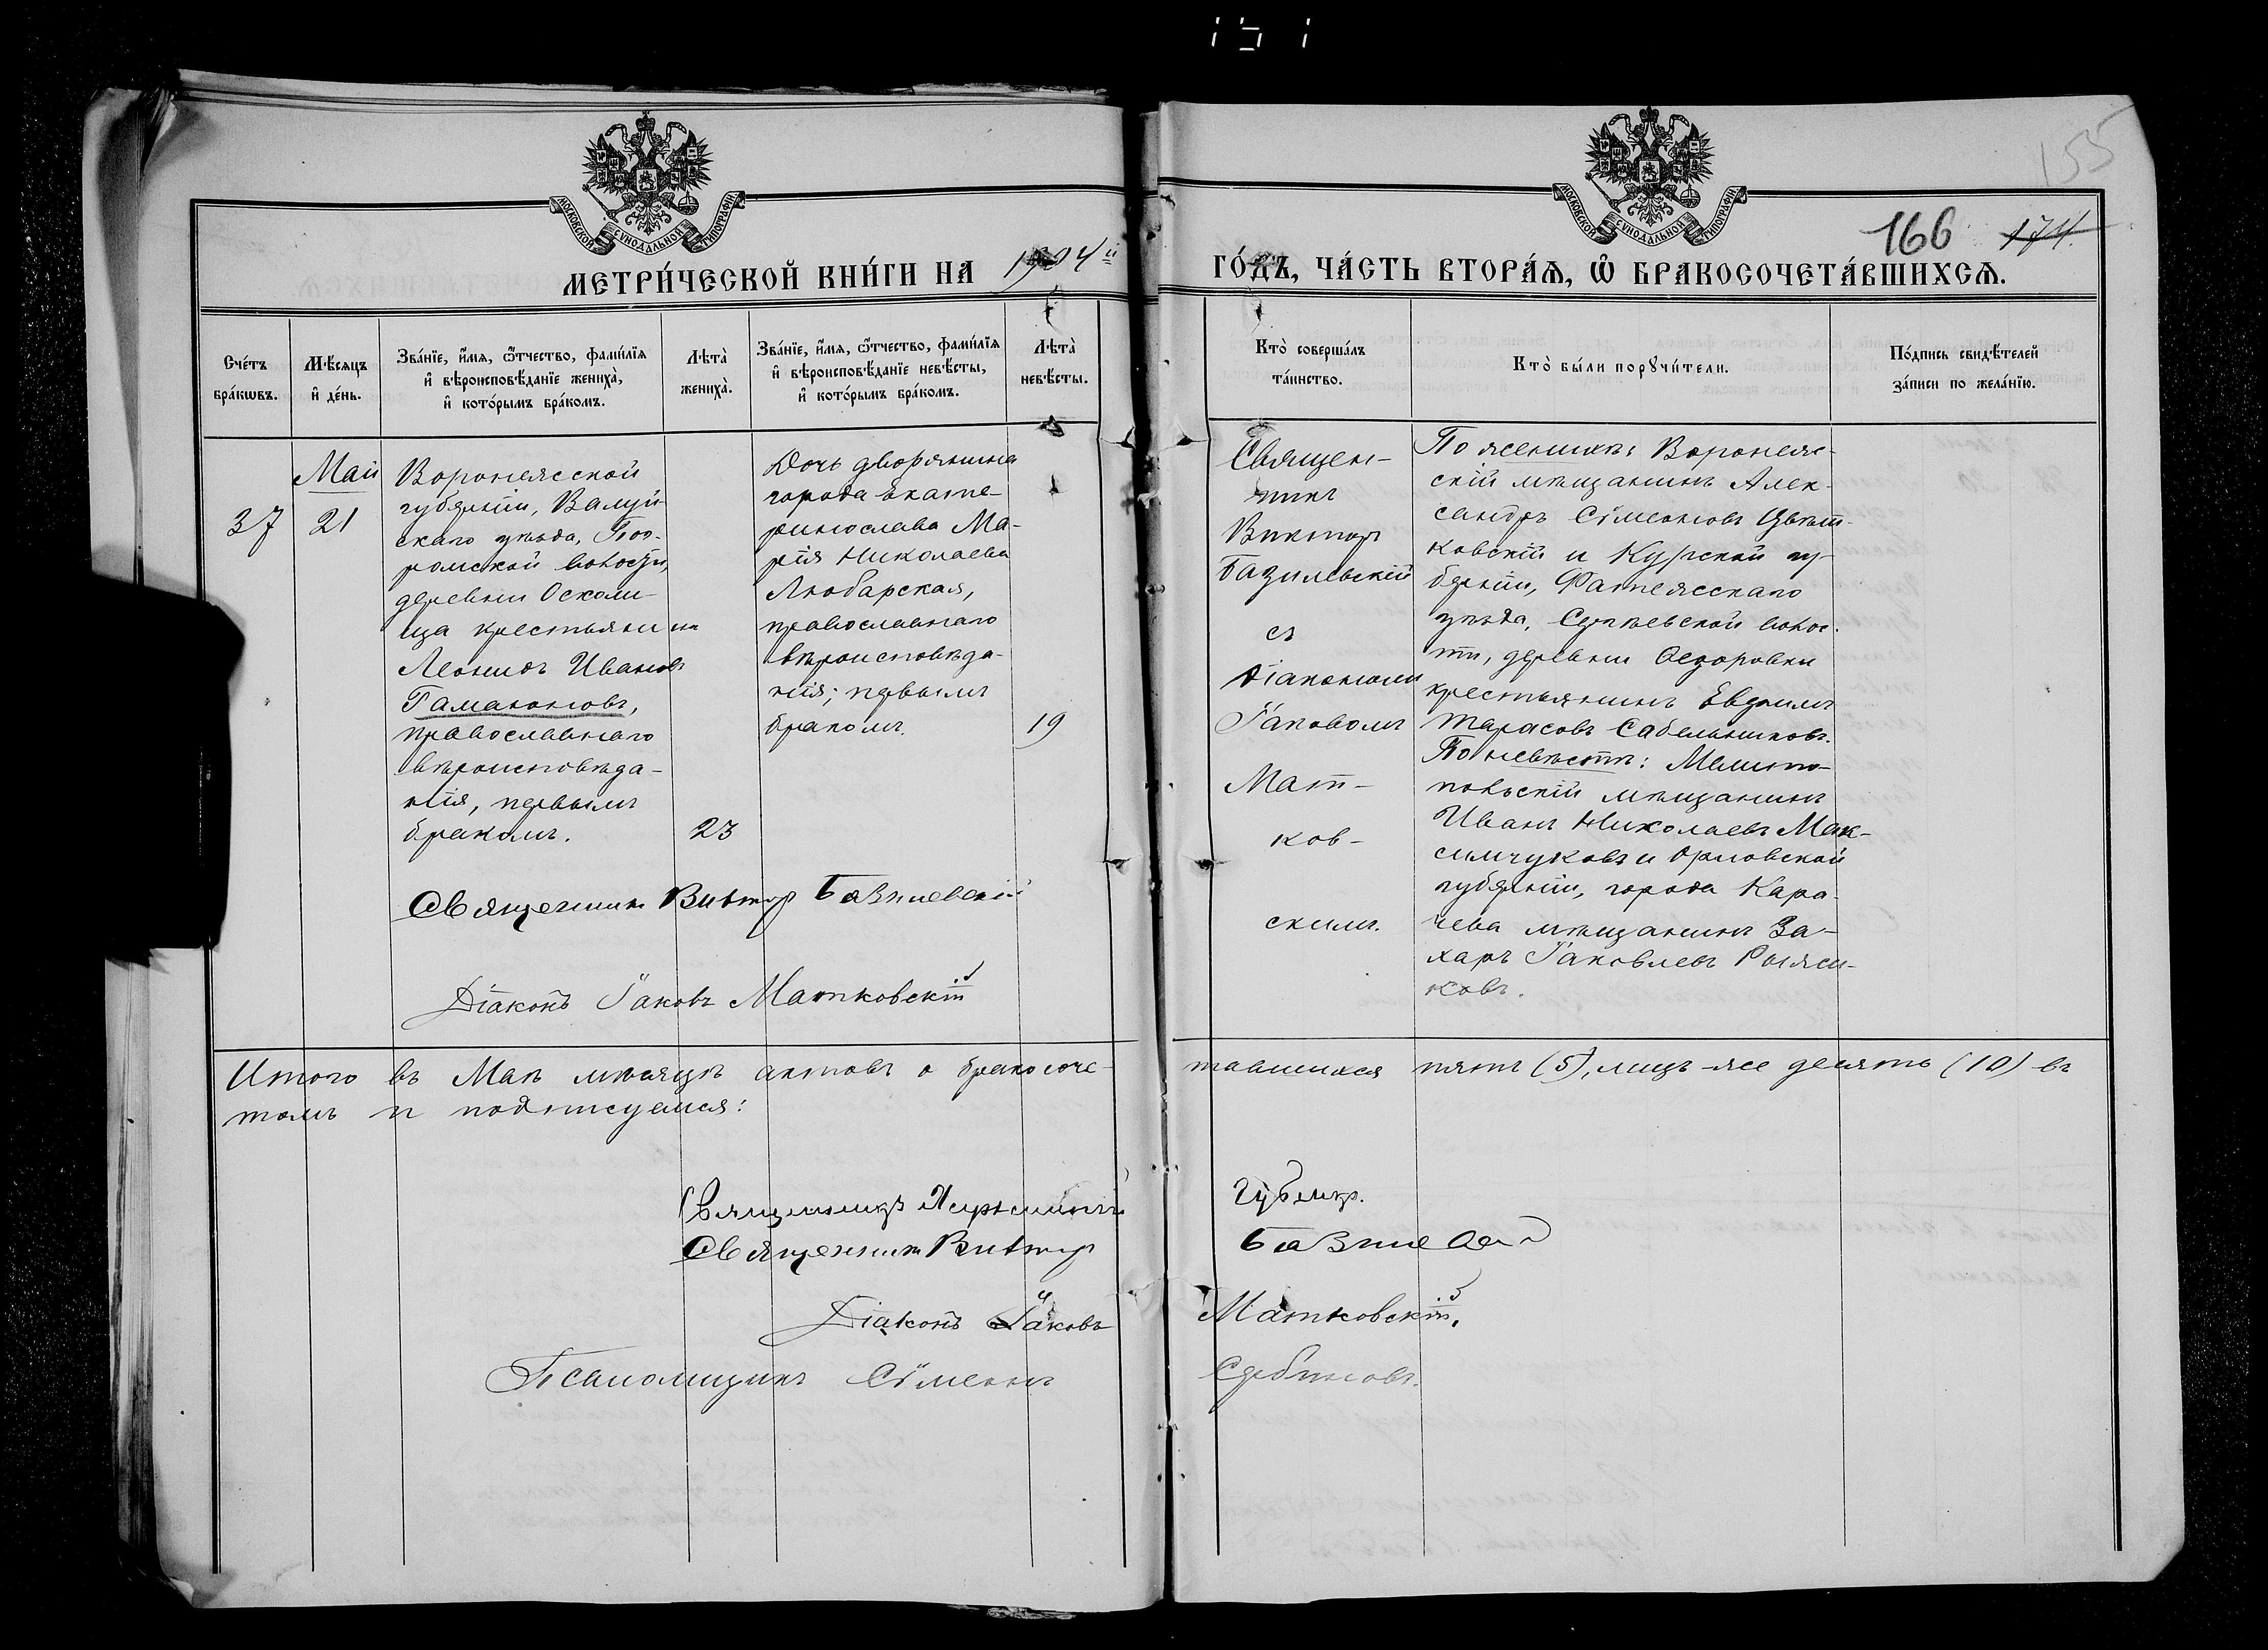 155
166 174.
МОСКОВСКОЙ СѴНОДАЛЬНОЙ ТИПОГРАФІИ
МОСКОВСКОЙ СѴНОДАЛЬНОЙ ТИПОГРАФІИ
МЕТРИ́ЧЕСКОЙ КНИ́ГИ НА 1904й
ГО́ДЪ, ЧА́СТЬ ВТОРА́Ѧ, Ѡ҆ БРАКОСОЧЕТА́ВШИХСѦ.
Сче́тъ
бра́кѡвъ.
Мѣ́сѧцъ
и҆ де́нь.
Зва́нїе, и҆́мѧ, ѻ҆́тчество, фами́лїѧ
и҆ вѣроисповѣ́данїе жениха̀,
и҆ кото́рымъ бра́комъ.
Лѣта̀
жениха̀.
Зва́нїе, и҆́мѧ, ѻ҆́тчество, фами́лїѧ
и҆ вѣроисповѣ́данїе невѣ́сты,
и҆ кото́рымъ бра́комъ.
Лѣта̀
невѣ́сты.
Кто̀ соверша́лъ
та́инство.
Кто̀ бы́ли порꙋчи́тели.
По́дпись свидѣ́телей
за́писи по жела́нїю.
37
Май
21
Воронежской
губерніи, Валуй-
скаго уѣзда,
ромской волости,
деревни Осколи-
ща крестьянинъ
Леонидъ Ивановъ
Гамаюновъ,
православнаго
вѣроисповѣда-
нія, первымъ
бракомъ.
23
Дочь дворянина
города Екате-
ринослава Ма-
рія Николаева
Любарская,
православнаго
вѣроисповѣда-
нія; первымъ
бракомъ.
19
Священ-
никъ
Викторъ
Базилевскій
съ
діакономъ
Іаковомъ
Мат-
ков-
скимъ.
По женихѣ: Воронеж-
скій мѣщанинъ Алек-
сандръ Сѵмеоновъ Цвѣт-
ковскій и Курской гу-
берніи, Фатежскаго
уѣзда, Сергѣевской волос-
ти, деревни Ѳедоровки
крестьянинъ Евдокимъ
Тарасовъ Сабельниковъ.
По невѣстѣ: Мелито-
польскій мѣщанинъ
Иванъ Николаевъ Мак-
симчуковъ и Орловской
губерніи, города Кара-
чева мѣщанинъ За-
харъ Іаковлевъ Рыжи-
ковъ.
Священникъ Викторъ Базилевскій
Діаконъ Іаковъ Матковскій
Итого въ Маѣ мѣсяцѣ актовъ о бракосоче-
тавшихся пять (5), лицъ-же десять (10) въ
томъ и подписуемся:
Священникъ
Священникъ Викторъ Базилевскій
Діаконъ Іаковъ Матковскій,
Псаломщикъ Сѵмеонъ